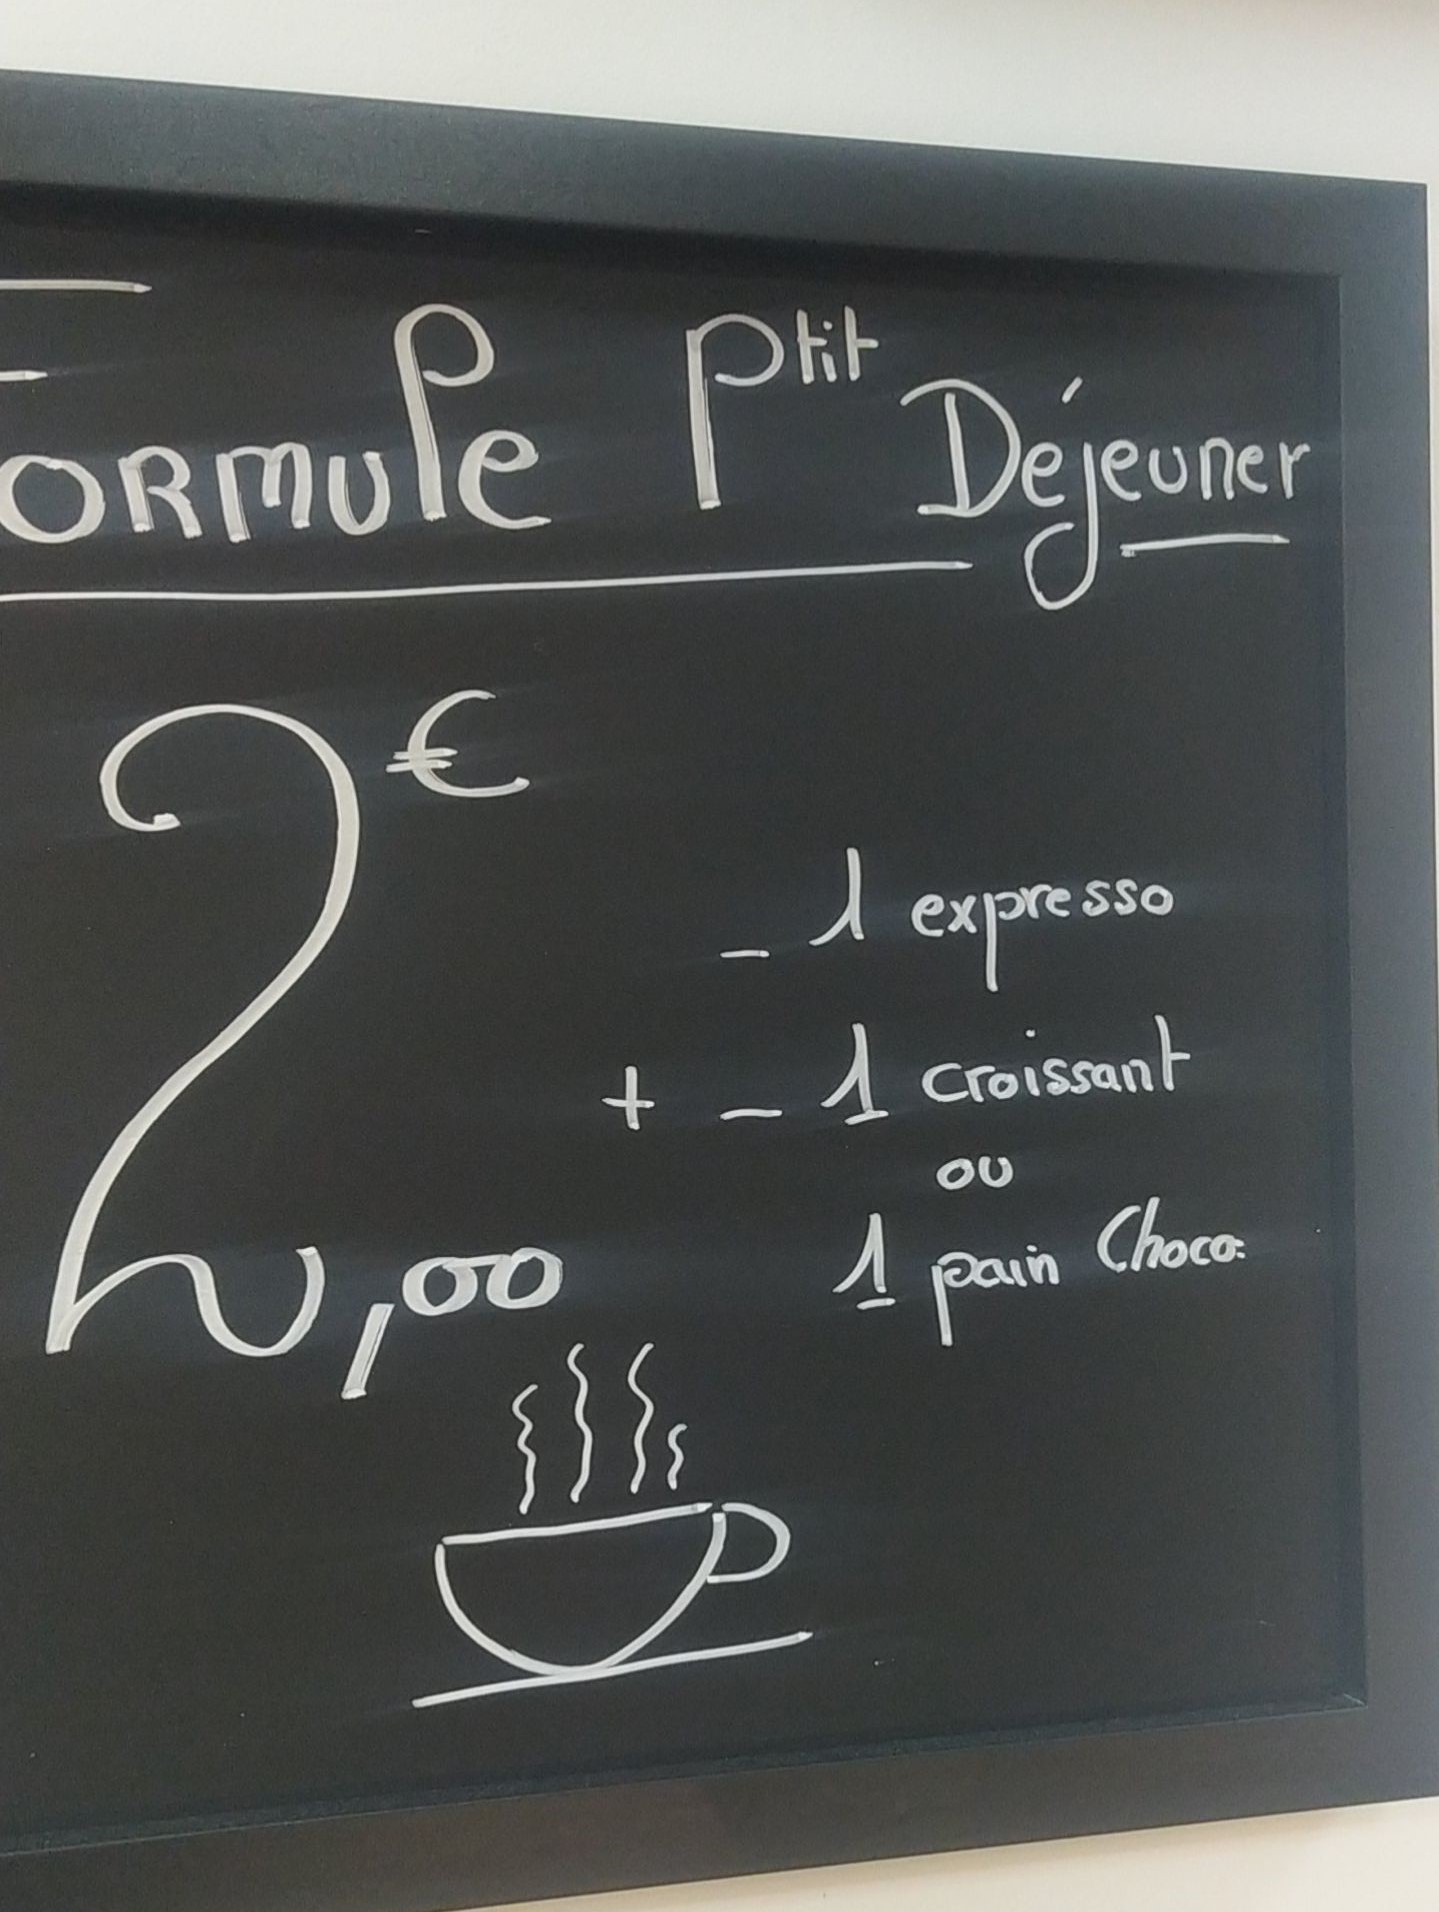 FORMULE Ptit Déjeuner
2,00 €
- 1 expresso
+ - 1 croissant
ou
1 pain Choco.